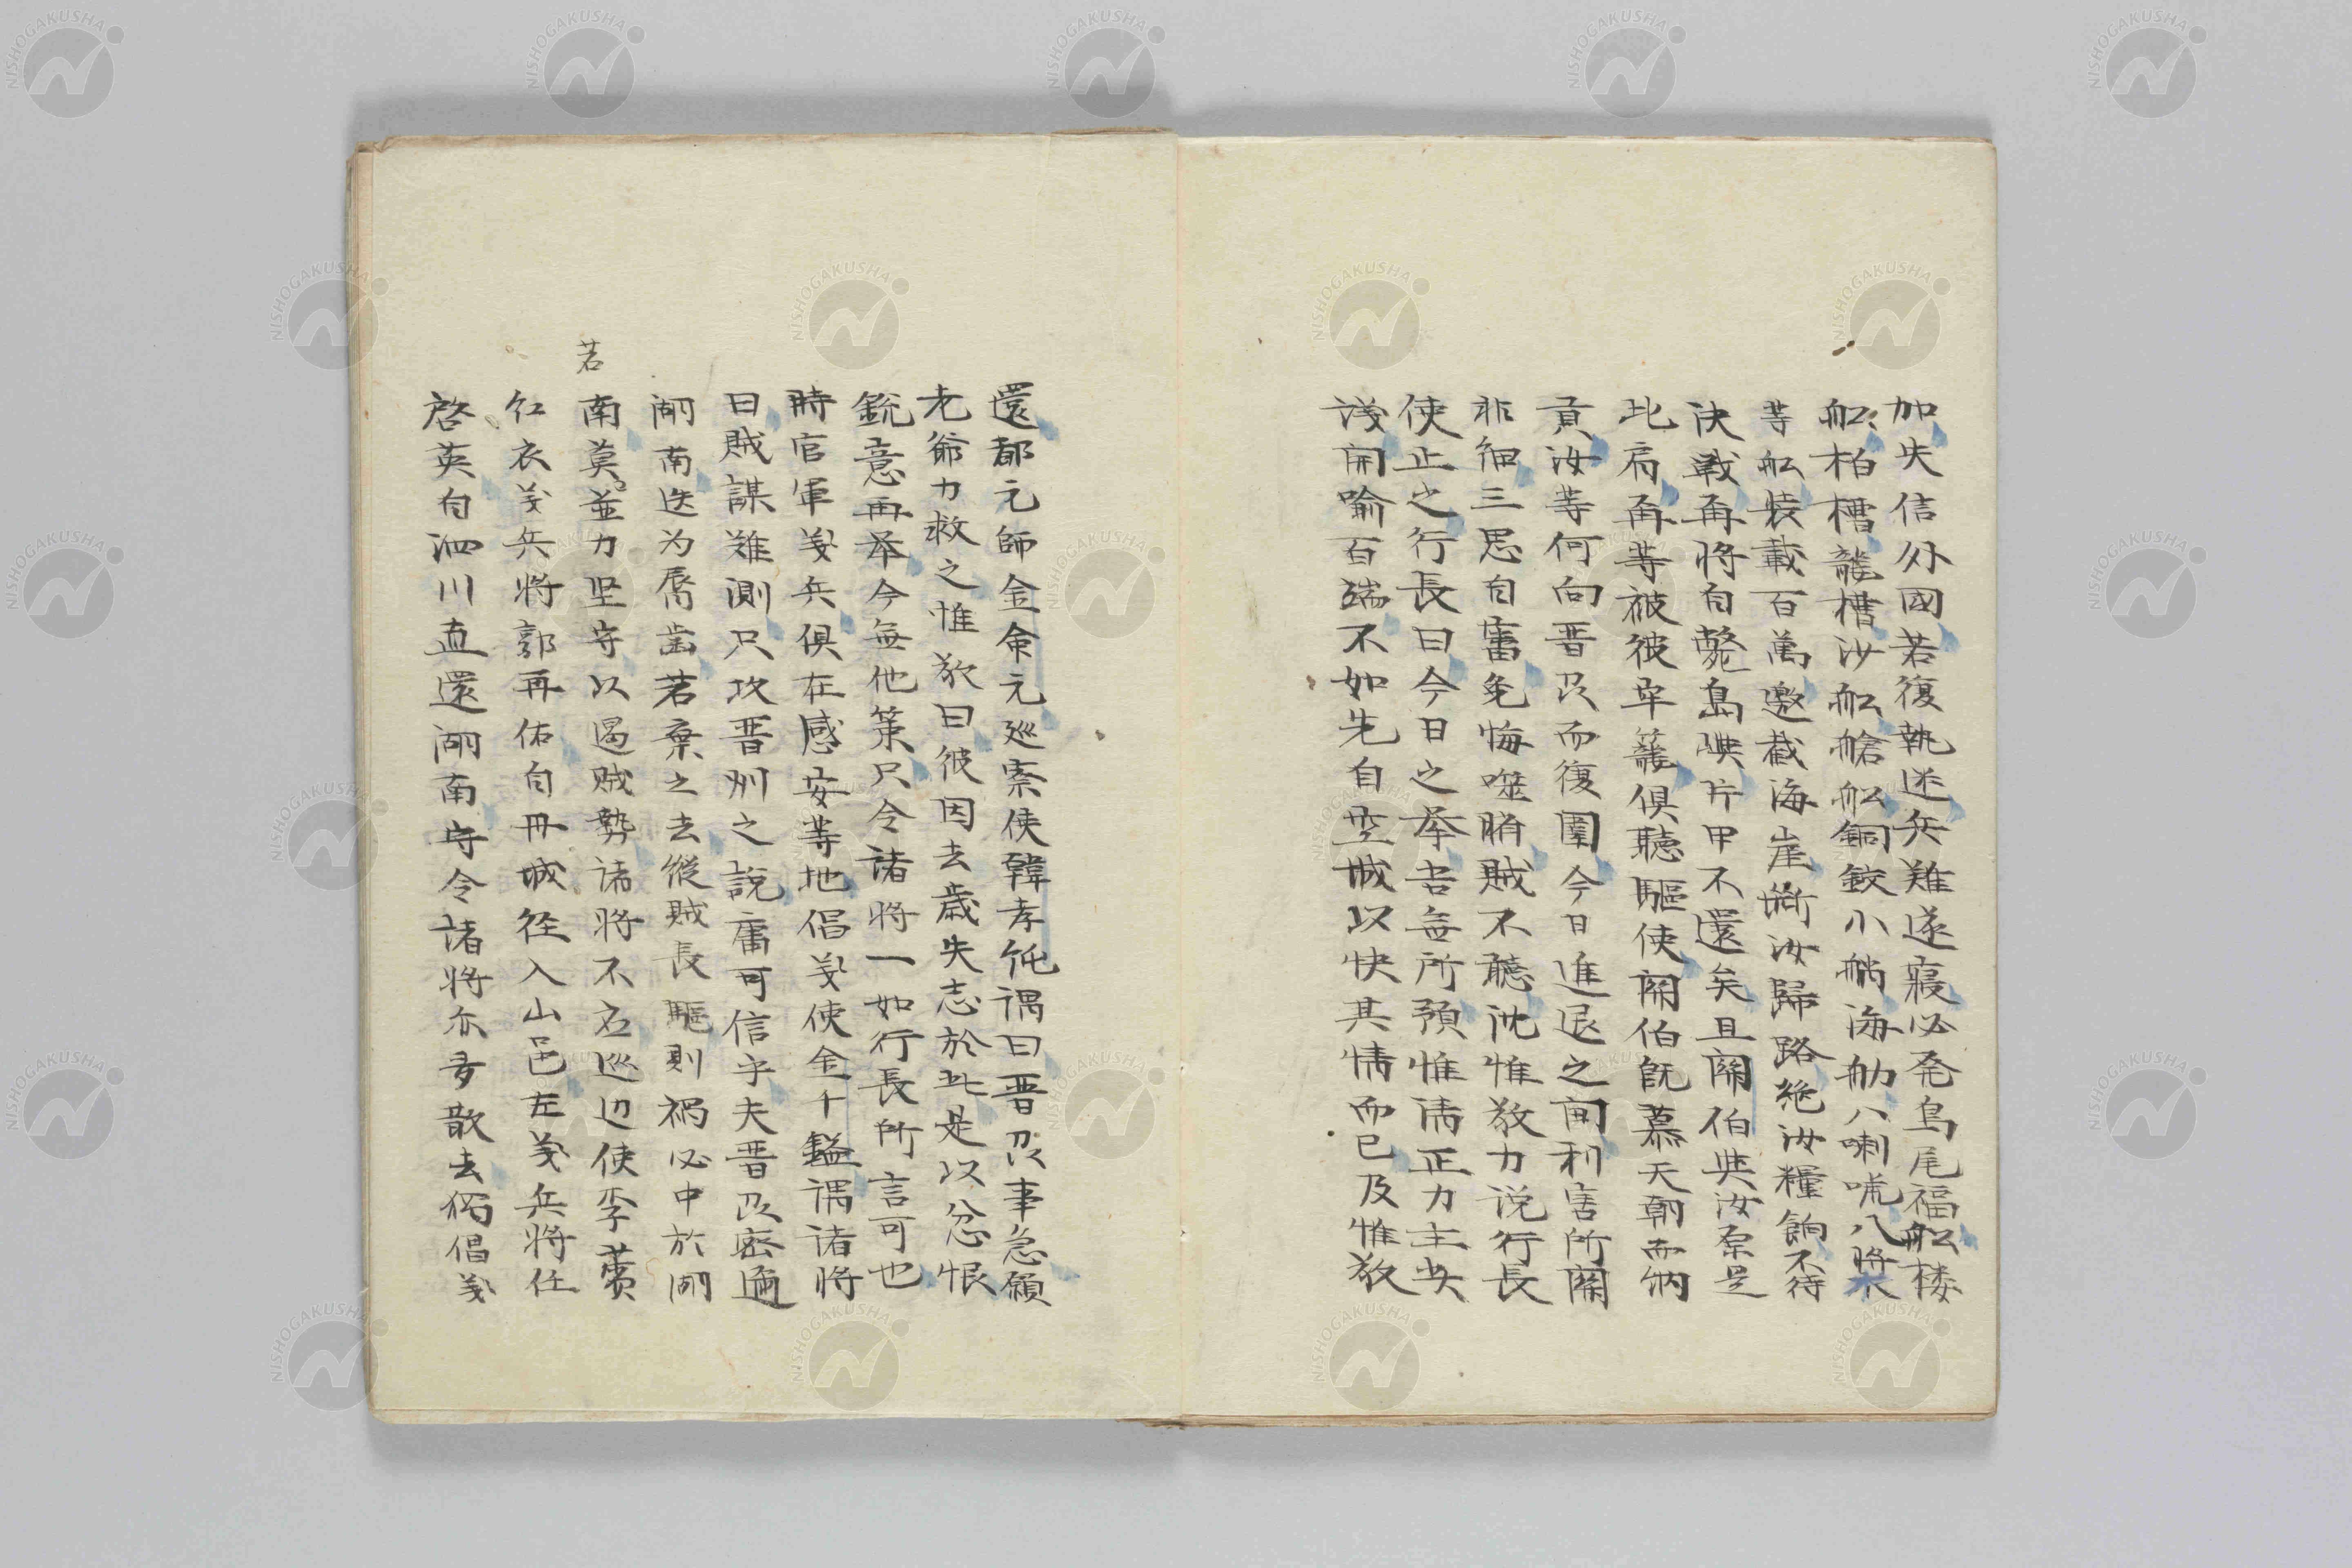 加失信外國若復執迷兵難遂寢必発鳥尾福舩楼
舩柏槽龍槽沙舩艙舩銅鉸小艄海舠八喇唬八將
等舩装載百萬邀截海崖斷汝歸路絶汝糧餉不待
決戰再將自斃島嶼片甲不還矣且關伯與汝原是
比肩再等被彼牢籠俱聽驅使関伯旣慕天朝而納
貢汝等何向晋州而復圍今日進退之間利害所關
非細三思自審免悔噬臍賊不聽沈惟敬力说行長
使正之行長曰今日之举吾無所預惟清正力主失
淺開喻百端不如先自空城以快其情而已及惟敬
還都元師金命元巡察使韓孝純謂曰晋州事急願
老爺力救之惟敬曰彼因去歲失志於此是以忿恨
銳意再举今無他策只令諸將一如行長所言可也
時官軍義兵俱在感安等地倡義使金千鎰謂諸將
曰賊謀難測只攻晋州之説庸可信乎夫晋州密邇
湖南迭为唇齒若棄之去縱賊長驅則禍必中於湖
若
南莫並力坚守以遏賊勢諸將不應巡边使李薲
红衣義兵將郭再佑自丹城径入山邑左義兵將任
啓英自泗川直還湖南守令諸將亦多散去独倡義